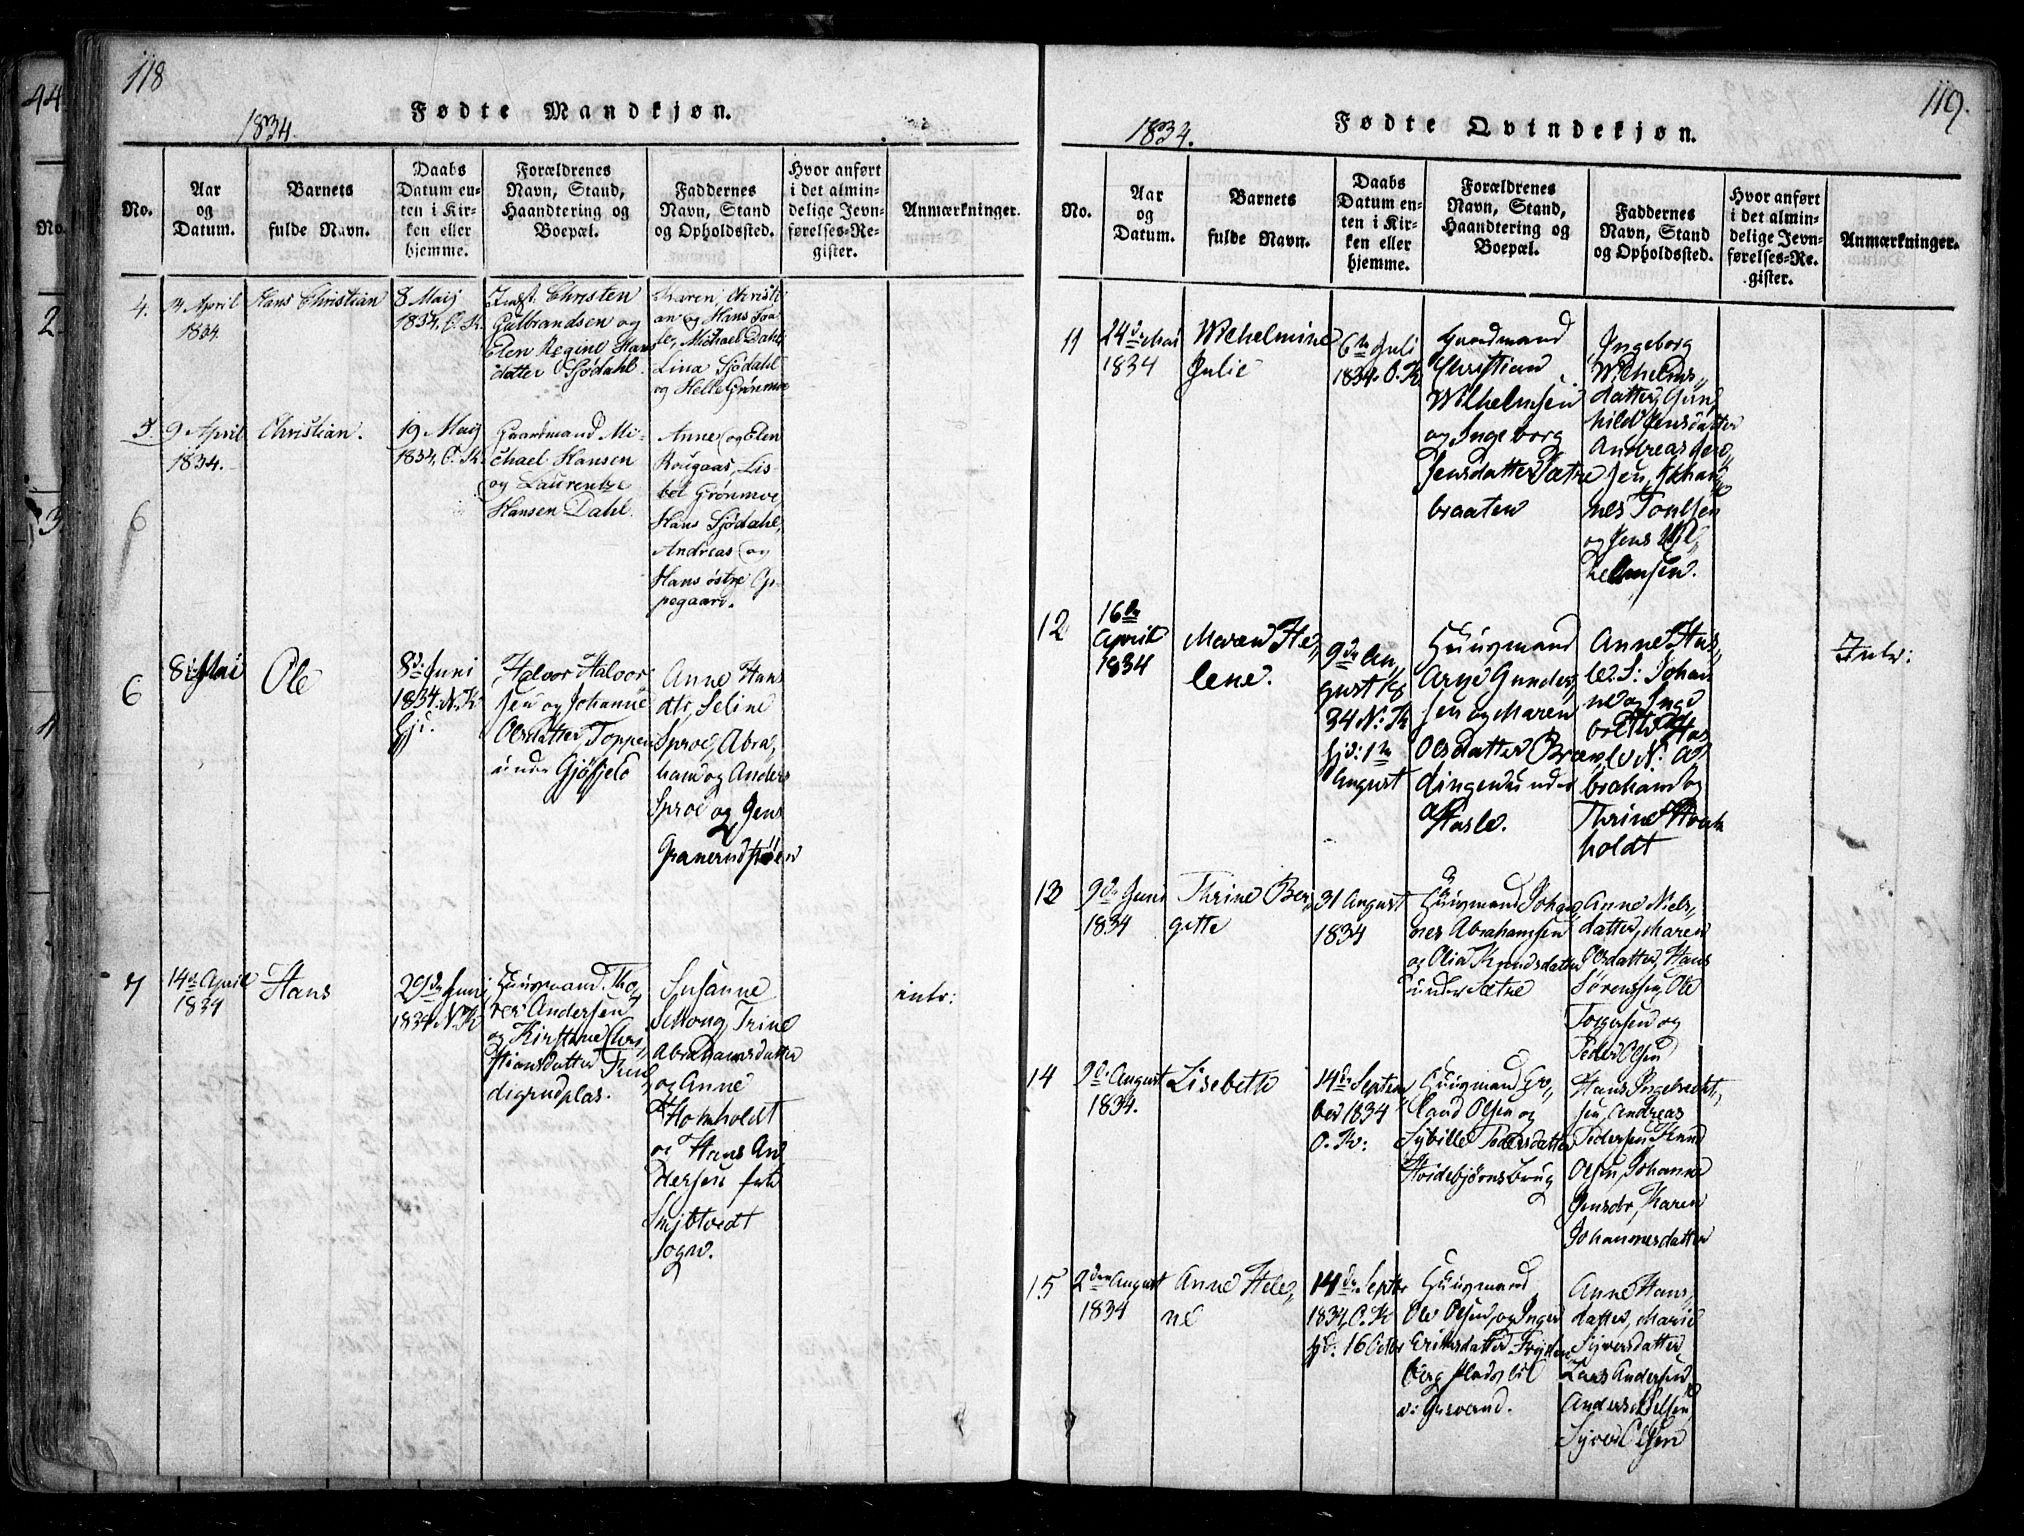 118
Fødte Mandkjøn.
1834.
No.
Aar
og
Datum.
Barnets
fulde Navn.
Daabs
Datum en-
ten i Kir-
ken eller
hjemme.
Forældrenes
Navn, Stand,
Haandtering og
Boepæl.
Faddernes
Navn, Stand
og Opholdssted.
Hvor anført
i det almin-
delige Jevn-
førelses-Re-
gister.
Anmærkninger.
4.
April
1834.
Hans Christian
8 Maij
1834, O. K.
Christen
Gulbrandsen og
Elen Regine Hans
datter Sjødahl.
Karen, Christi
an og Hans
Michael Dahl
Lina Sjødahl
og Helle Grønmoe
5.
9 April
1834.
Christian.
19 Maij
1834, O. K.
Gaardmand Mi-
chael Hansen
og Laurentze
Hansen Dahl.
Anne og Elen
Rougaas, Lis-
bet Grønmoe
Hans Sjødahl,
Andreas og
Hans østre Op-
pegaard.
6
6
8 Mai
Ole
8de Juni
1834. N. K.
Hj:
Halvor Halvor
sen og Johanne
Olsdatter Toppen
under Gjøfjeld
Anne Hans
dtr, Seline
Sproe, Abra,
ham og Anders
Sproe og Jens
7
14de April
1834
Hans
29de Juni
1834. N. K
Huusmand Tho,
res Andersen
og Kirstine Chris,
tiansdatter
digrudplas.
Susanne
Trine
Abrahamsdatter
og Anne
Homholdt
og Hans An
dersen fra
Sogn.
intr:
119.
Fødte Qvindekjøn.
1834.
No.
Aar
og
Datum.
Barnets
fulde Navn.
Daabs
Datum en-
ten i Kir-
ken eller
hjemme.
Forældrenes
Navn, Stand,
Haandtering og
Boepæl.
Faddernes
Navn, Stand
og Opholdssted.
Hvor anført
i det almin-
delige Jevn-
førelses-Re-
gister.
Anmærkninger.
11
24de Mai
1834
Wilhelmine
Julie
6te Juli
1834. O. K
Gaardmand
Christian
Wilhelmsen
og Ingeborg
Jensdatter Sætre
braaten
Ingeborg
Wilhelms,
datter, Gun,
hild Jensdatter
Andreas
sen, Johan
nes Poulsen
og Jens Wil,
helmsen.
12
16de
April
1834
Maren He,
lene.
9de Au,
gust 18
34 N: K
hjd: 1ste
August
Huusmand
Arne Gunder,
sen og Maren
Olsdatter Bræn,
dingen under
Hasle.
Anne Has,
le S: Johan
ne og Inge
borg Has
le N: A
braham og
Thrine Hom
holdt
Intr:
13
9de Juni
1834
Thrine Ber,
gette
31 August
1834
Huusmand Johan,
nes Abrahamsen
og Olia Knudsdatter
under Sætre
Anne Niels,
datter, Maren
Olsdatter, Hans
Sørenssen, Ole
Torgersen og
Peder Olsen
14
9de August
1834.
Lisebeth
14de Septem,
ber 1834
O. K:
Huusmand Er,
land Olsen og
Sybille Pedersdatter
Hvidebjørnsbrug
Hans Ingebrecht,
sen, Andreas
Pedersen, Knud
Olsen, Johanne
Jensdtr, Karen
Johannesdatter
15
2den August
1834
Anne Hele,
ne
14de Septbr
1834, O. K
hjd: 16 Octbr
Huusmand
Ole Olsen, og Inger
Eriksdatter Fryden
berg
Anne Hans,
datter, Marie
Syversdatter
Lars Andersen
Anders Olsen
Syver Olsen
44
No.
2.
3
4